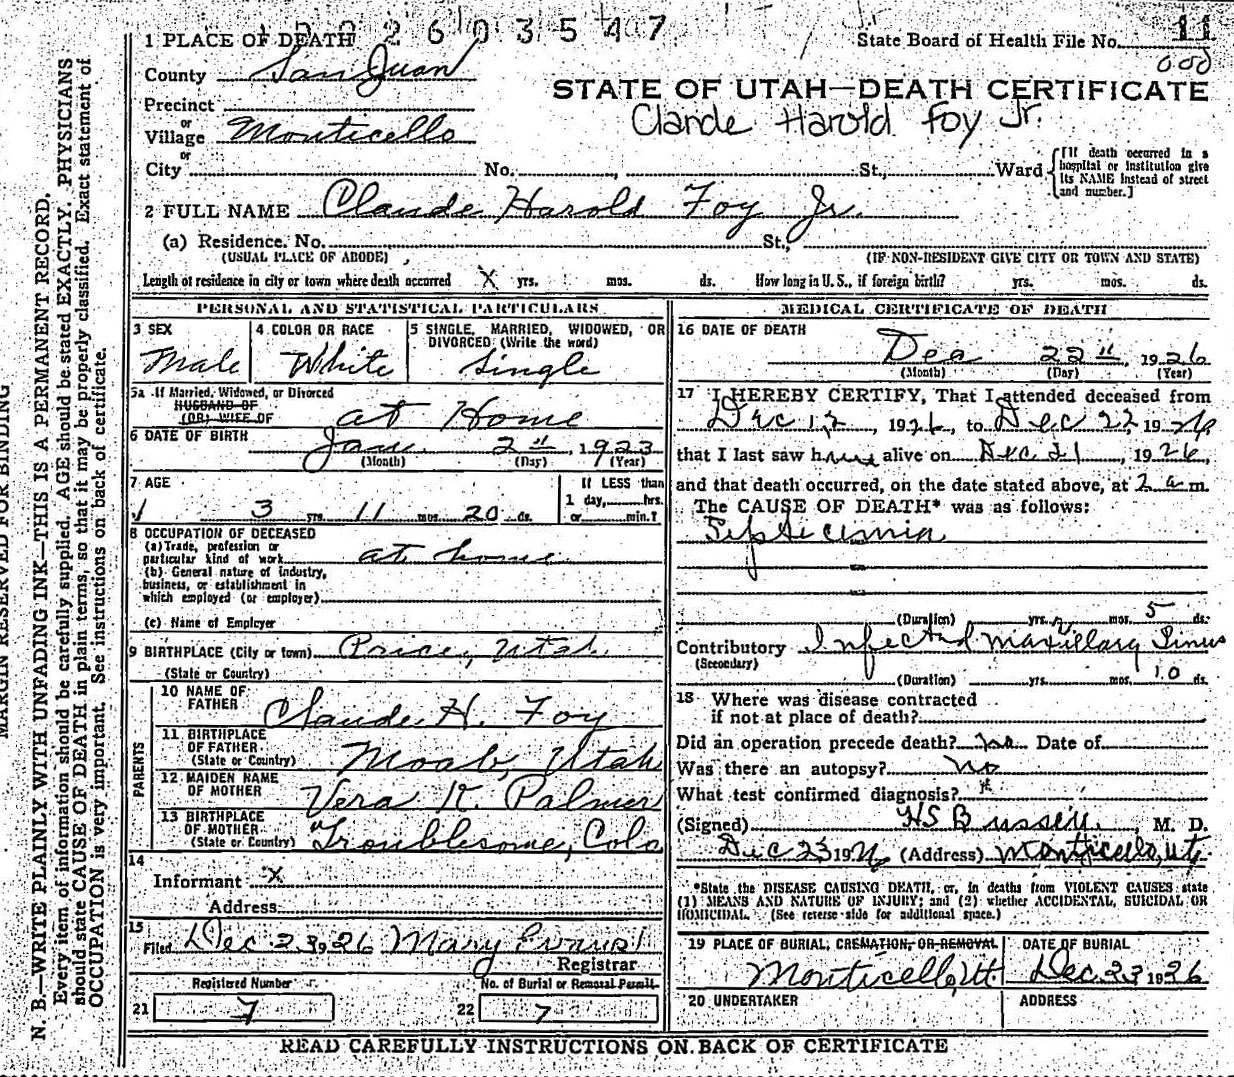 1 PLACE OF DEATH
2 6 0 3 5 4 7
State Board of Health File No. 11
County San Juan
STATE OF UTAH—DEATH CERTIFICATE
Precinct
Claude Harold Foy Jr.
or
Village Monticello
or
City No. St., Ward
[If death occurred in a hospital or institution give its NAME instead of street and number.]
2 FULL NAME Claude Harold Foy Jr.
(a) Residence. No. St.,
(USUAL PLACE OF ABODE) (IF NON-RESIDENT GIVE CITY OR TOWN AND STATE)
Length of residence in city or town where death occurred X yrs. mos. ds. How long in U.S., if foreign birth? yrs. mos. ds.
PERSONAL AND STATISTICAL PARTICULARS
3 SEX
Male
4 COLOR OR RACE
White
5 SINGLE, MARRIED, WIDOWED, OR
DIVORCED (Write the word)
Single
5a If Married, Widowed, or Divorced
HUSBAND OF
(OR) WIFE OF at Home
6 DATE OF BIRTH Jan. 2" 1923
(Month) (Day) (Year)
7 AGE
3 yrs. 11 mos. 20 ds.
If LESS than
1 day, hrs.
or min.?
8 OCCUPATION OF DECEASED
(a) Trade, profession or
particular kind of work at home
(b) General nature of industry,
business, or establishment in
which employed (or employer)
(c) Name of Employer
9 BIRTHPLACE (City or town) Price, Utah
(State or Country)
PARENTS
10 NAME OF
FATHER Claude H. Foy
11 BIRTHPLACE
OF FATHER
(State or Country) Moab, Utah
12 MAIDEN NAME
OF MOTHER Vera K. Palmer
13 BIRTHPLACE
OF MOTHER
(State or Country) Troublesome, Colo
14
Informant X
Address
15
Filed Dec 23, 1926 Mary Evans
Registrar
Registered Number
21 7
No. of Burial or Removal Permit
22 7
MEDICAL CERTIFICATE OF DEATH
16 DATE OF DEATH
Dec 22" 1926
(Month) (Day) (Year)
17 I HEREBY CERTIFY, That I attended deceased from
Dec 12, 1926, to Dec 22, 1926,
that I last saw him alive on Dec 21, 1926,
and that death occurred, on the date stated above, at 2 a m.
The CAUSE OF DEATH* was as follows:
Septecimia
(Duration) yrs. mos. 5 ds.
Contributory Infected Maxillary Sinus
(Secondary)
(Duration) yrs. mos. 10 ds.
18 Where was disease contracted
if not at place of death?
Did an operation precede death? Date of
Was there an autopsy? no
What test confirmed diagnosis?
(Signed) M. D.
Dec 23 1926 (Address) Monticello, Ut.
*State the DISEASE CAUSING DEATH, or, in deaths from VIOLENT CAUSES state
(1) MEANS AND NATURE OF INJURY; and (2) whether ACCIDENTAL, SUICIDAL OR
HOMICIDAL. (See reverse side for additional space.)
19 PLACE OF BURIAL, CREMATION, OR REMOVAL
Monticello, Ut
DATE OF BURIAL
Dec 23 1926
20 UNDERTAKER
ADDRESS
READ CAREFULLY INSTRUCTIONS ON BACK OF CERTIFICATE
MARGIN RESERVED FOR BINDING
N. B.—WRITE PLAINLY WITH UNFADING INK—THIS IS A PERMANENT RECORD.
Every item of information should be carefully supplied. AGE should be stated EXACTLY. PHYSICIANS
should state CAUSE OF DEATH in plain terms, so that it may be properly classified. Exact statement of
OCCUPATION is very important. See instructions on back of certificate.